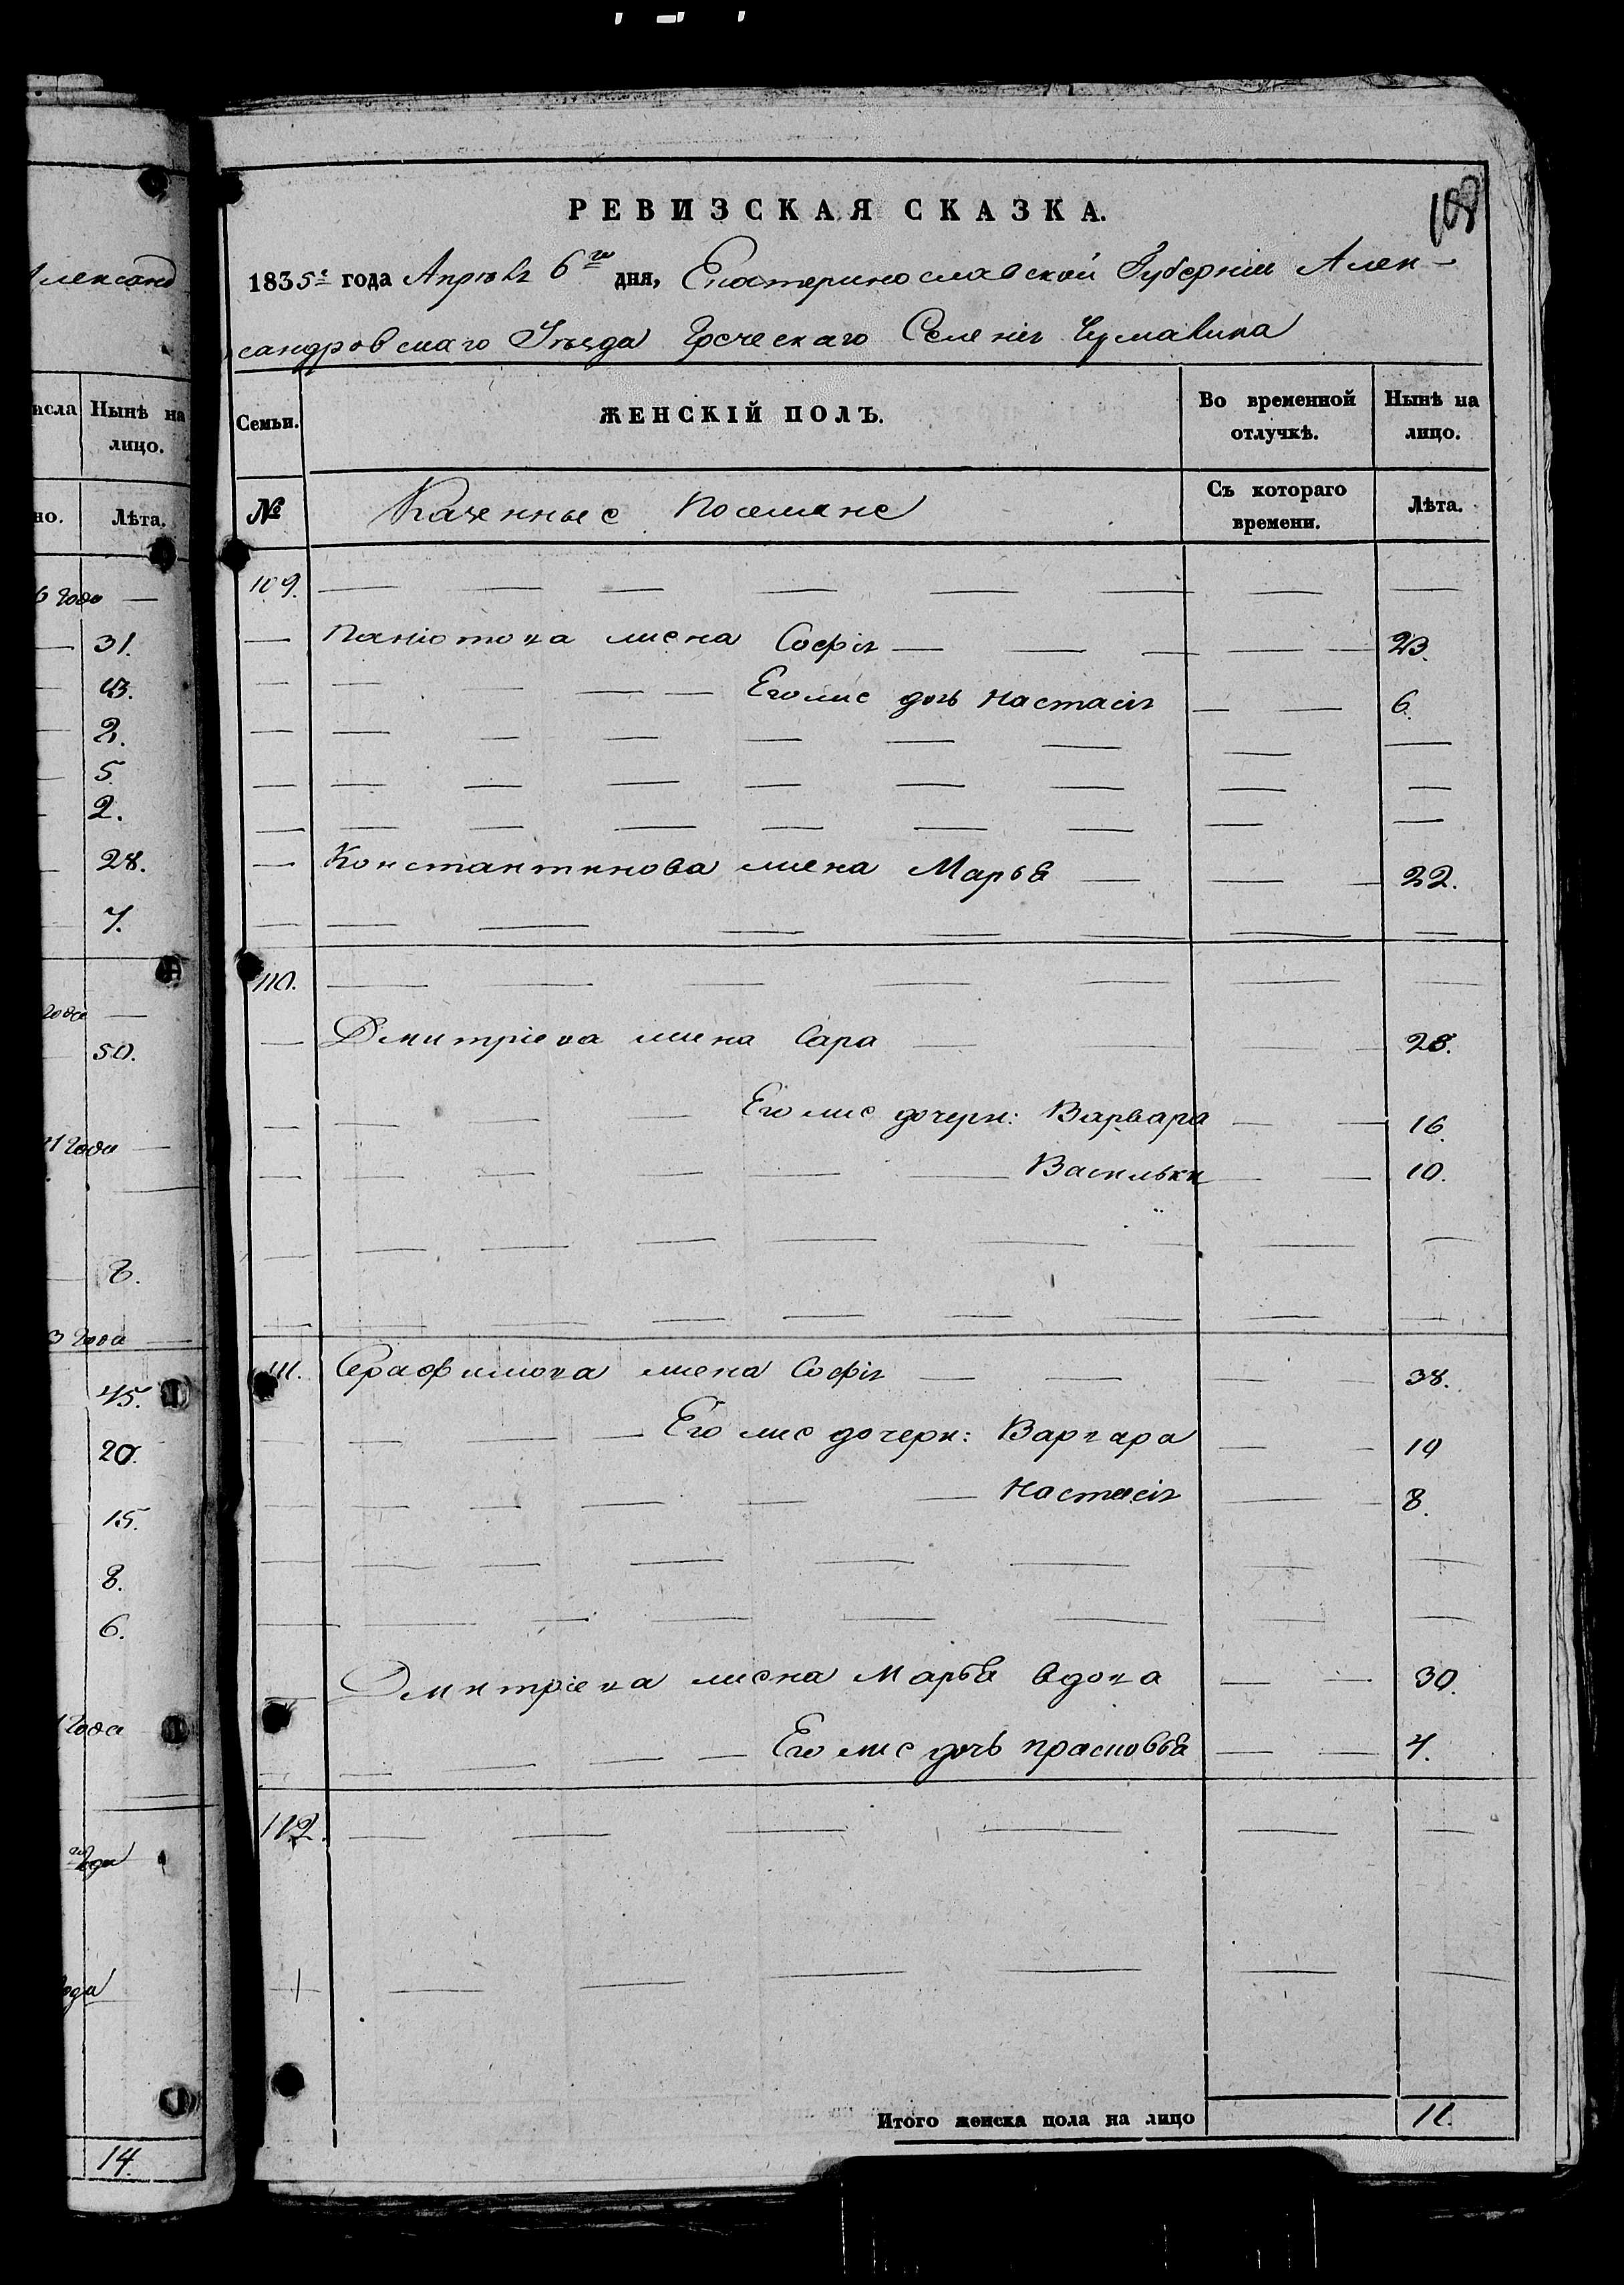 Александ
исла Нынѣ на
лицо.
но. Лѣта.
6 года —
31.
2.
5.
2.
28.
7.
года —
50.
1 года —
8.
3 года
45.
20.
15.
8.
6.
1 года
года
года
14.
108
РЕВИЗСКАЯ СКАЗКА.
1835г. года Апрѣля 6го дня, Екатеринославской Губерніи Алек-
сандровскаго Уѣзда Греческаго Селенія
Семьи. ЖЕНСКІЙ ПОЛЪ. Во временной отлучкѣ. Нынѣ на лицо.
№ Казенные Поселяне Съ котораго времени. Лѣта.
109.
Паніотова жена Софія 23.
Его же дочь Настасія 6.
Константинова жена Марья 22.
110.
Дмитріева жена Сара 28.
Его же дочери: Варвара 16.
Васильки 10.
111. Серафимова жена Софія 38.
Его же дочери: Варвара 14
Настасія 8.
Дмитріева жена Марья вдова 30.
Его же дочь Прасковья 4.
112.
Итого женска пола на лицо 11.